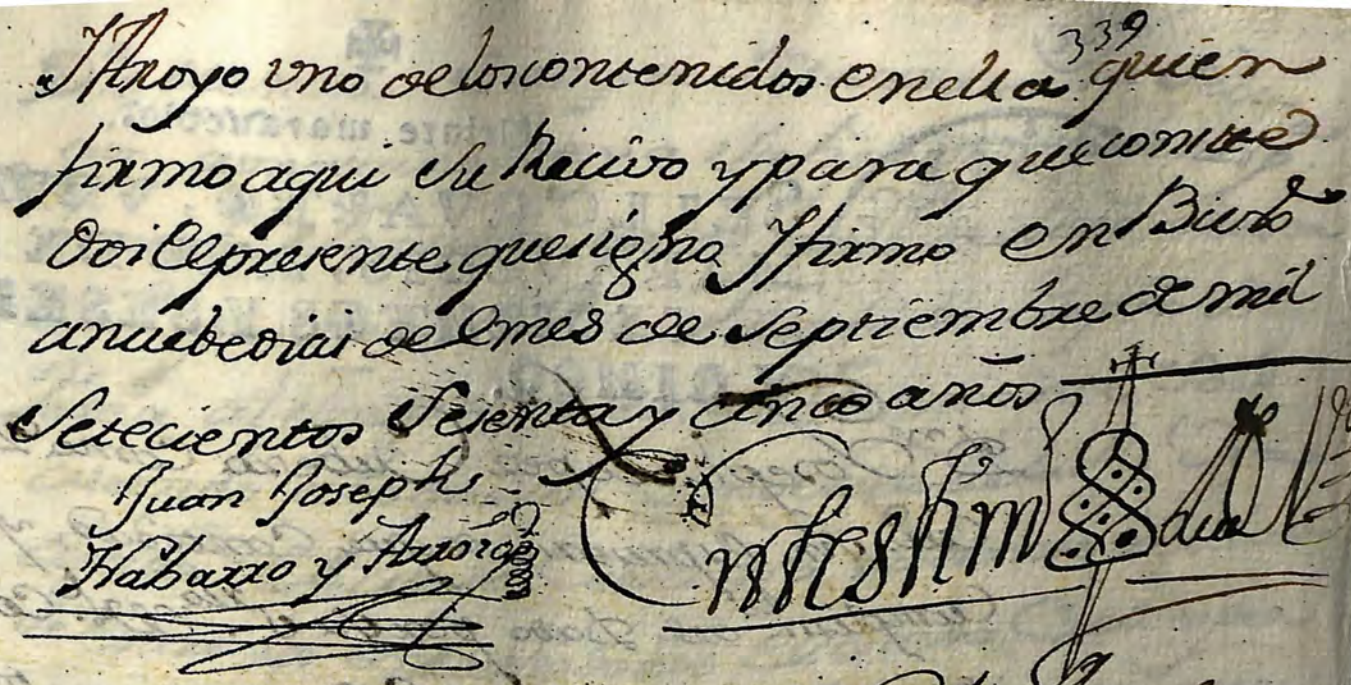 339
YArroyo vno de los contenidos en ella a quien
firmo aqui su Recivo y para que conste
doi el presente que signo Y firmo en
a nuebe dias del mes de Septiembre de mil
Setecientos Sesenta y cinco años
Juan Joseph
Nabarro y Arroyo
En testim